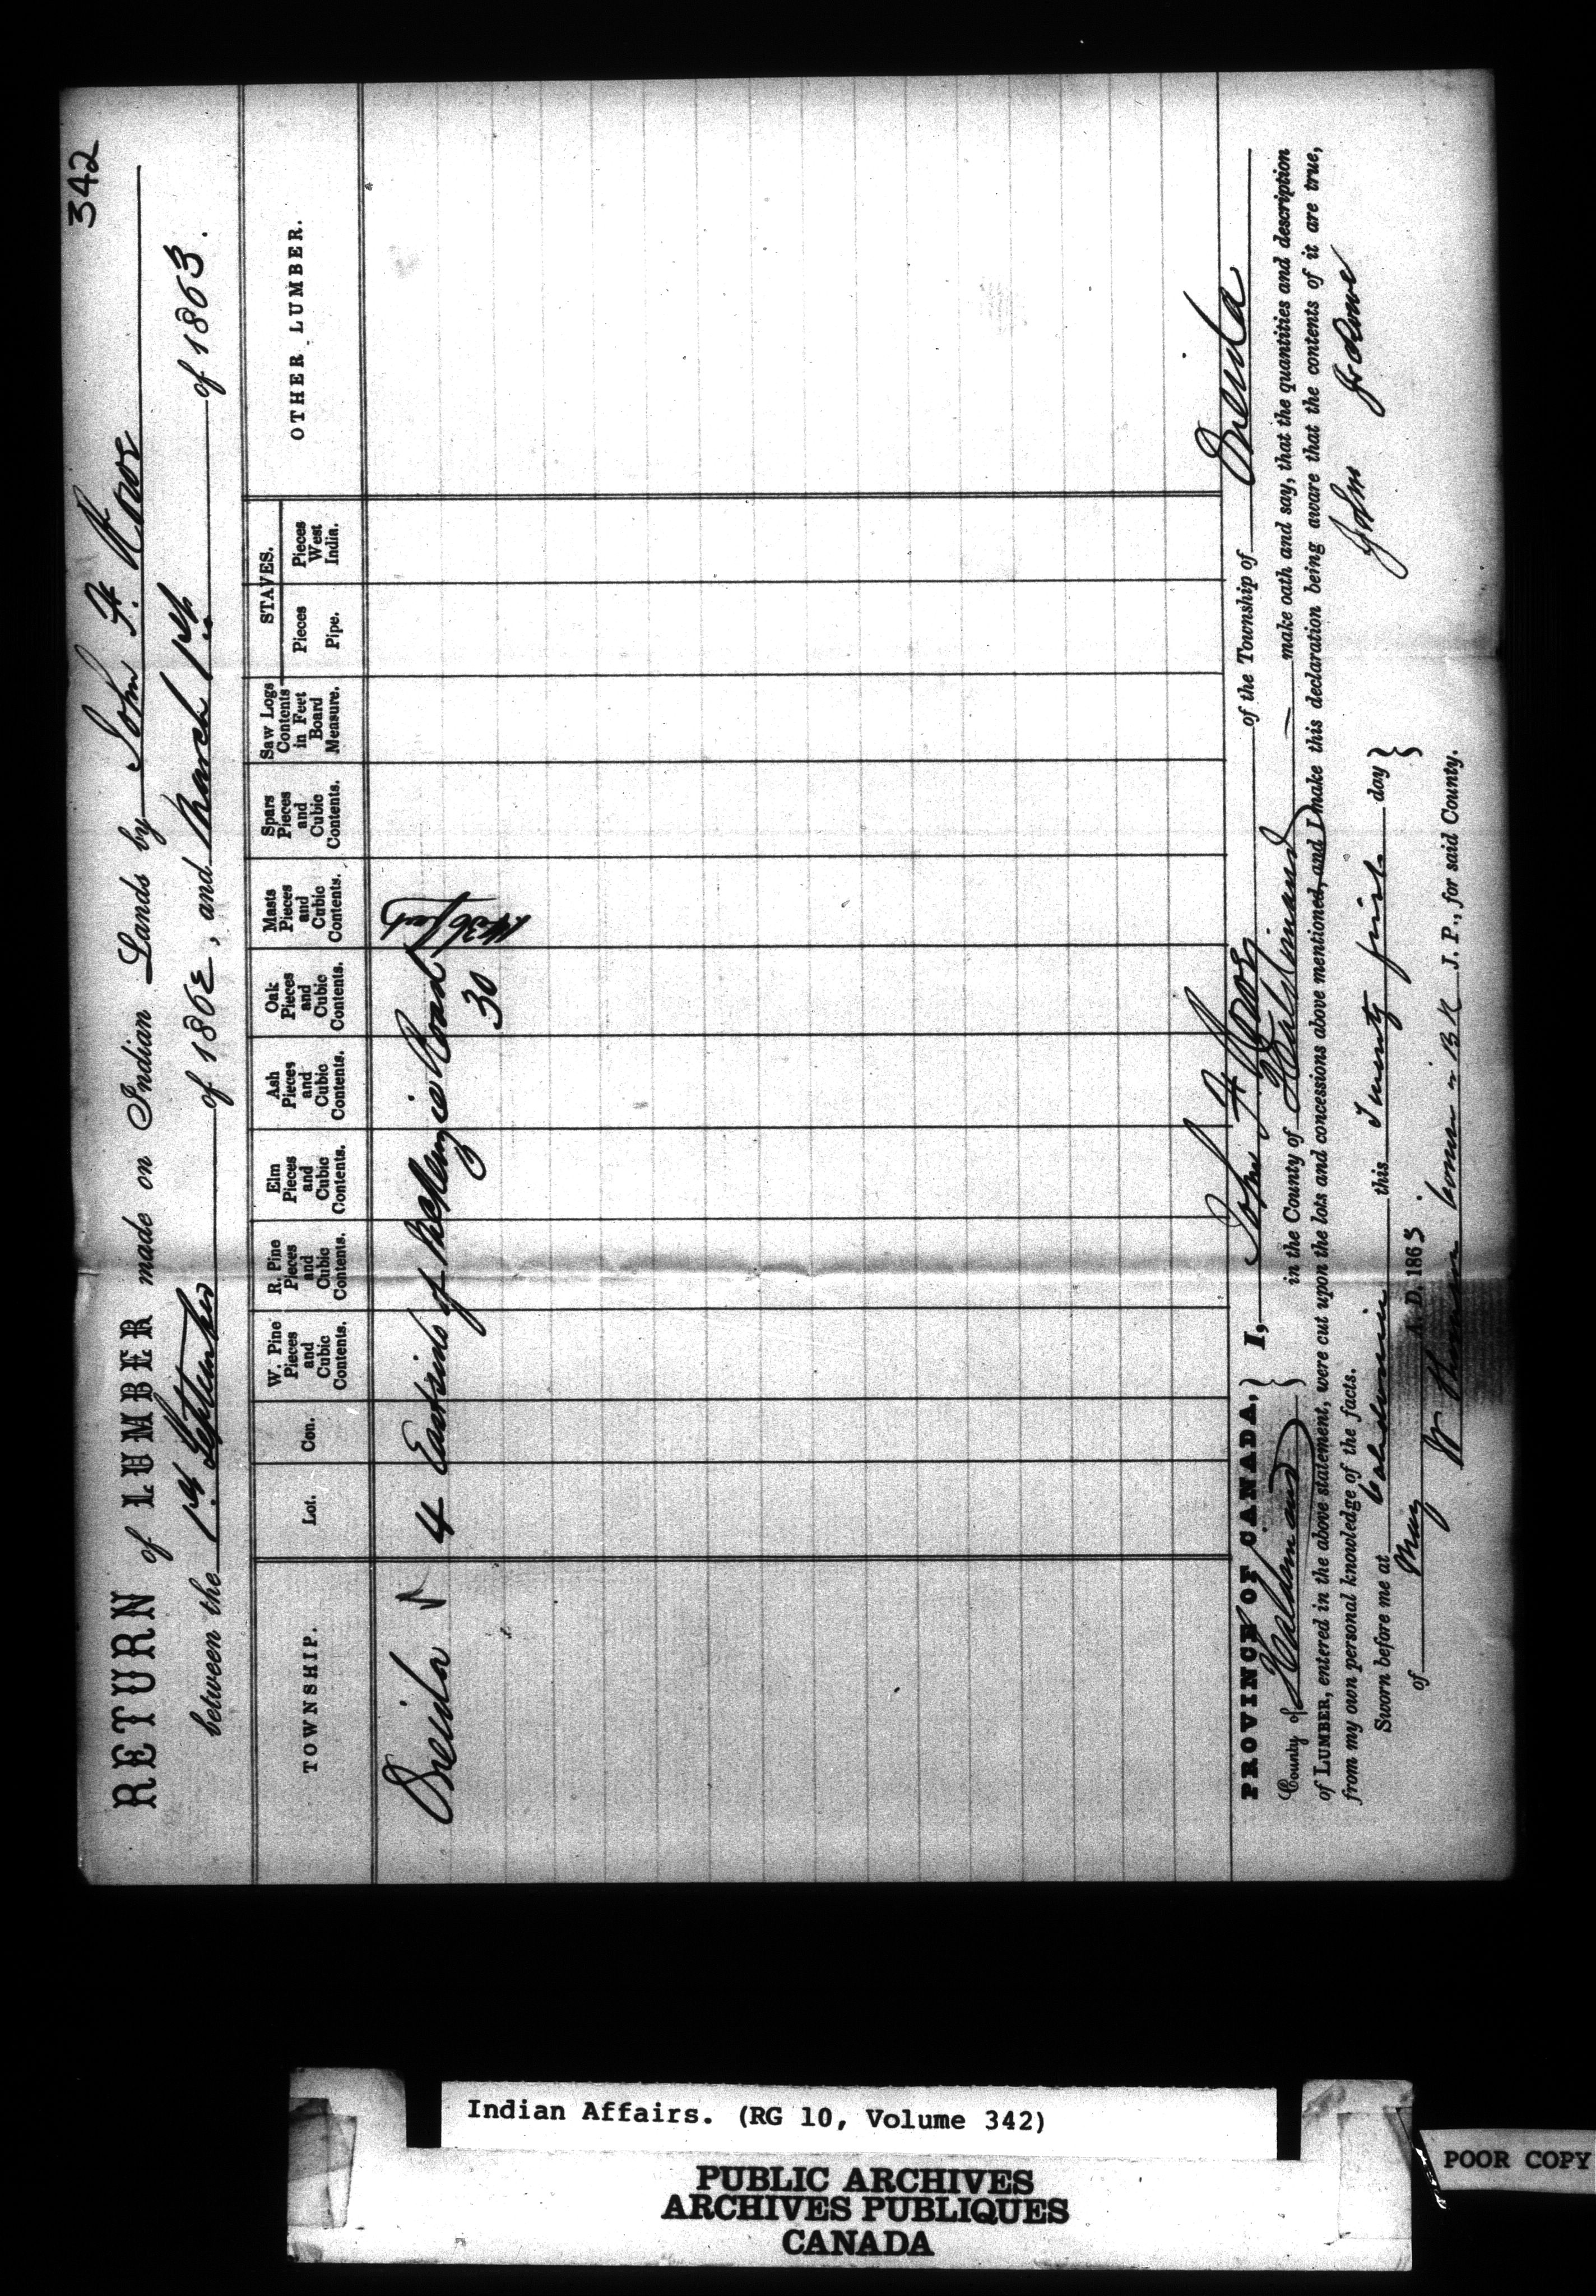 342
RETURN of LUMBER made on Indian Lands by John H.
between the 1st September of 1862, and March 1st of 1863.
TOWNSHIP.
Lot.
Con.
W. Pine Pieces and Cubic Contents.
R. Pine Pieces and Cubic Contents.
Elm Pieces and Cubic Contents.
Ash Pieces and Cubic Contents.
Oak Pieces and Cubic Contents.
Masts Pieces and Cubic Contents.
Spars Pieces and Cubic Contents.
Saw Logs Contents in Feet Board Measure.
STAVES.
Pieces Pipe.
Pieces West India.
OTHER LUMBER.
Oneida 4 East side of McKenzie Road
30 1436 feet
PROVINCE OF CANADA, I, John H. of the Township of Oneida
County of Haldimand in the County of Haldimand make oath and say, that the quantities and description
of LUMBER, entered in the above statement, were cut upon the lots and concessions above mentioned, and I make this declaration being aware that the contents of it are true,
from my own personal knowledge of the facts. John
Sworn before me at Caledonia this Twenty first day
of May A. D. 1863.
W J. P., for said County.
Indian Affairs. (RG 10, Volume 342)
PUBLIC ARCHIVES
ARCHIVES PUBLIQUES
CANADA
POOR COPY